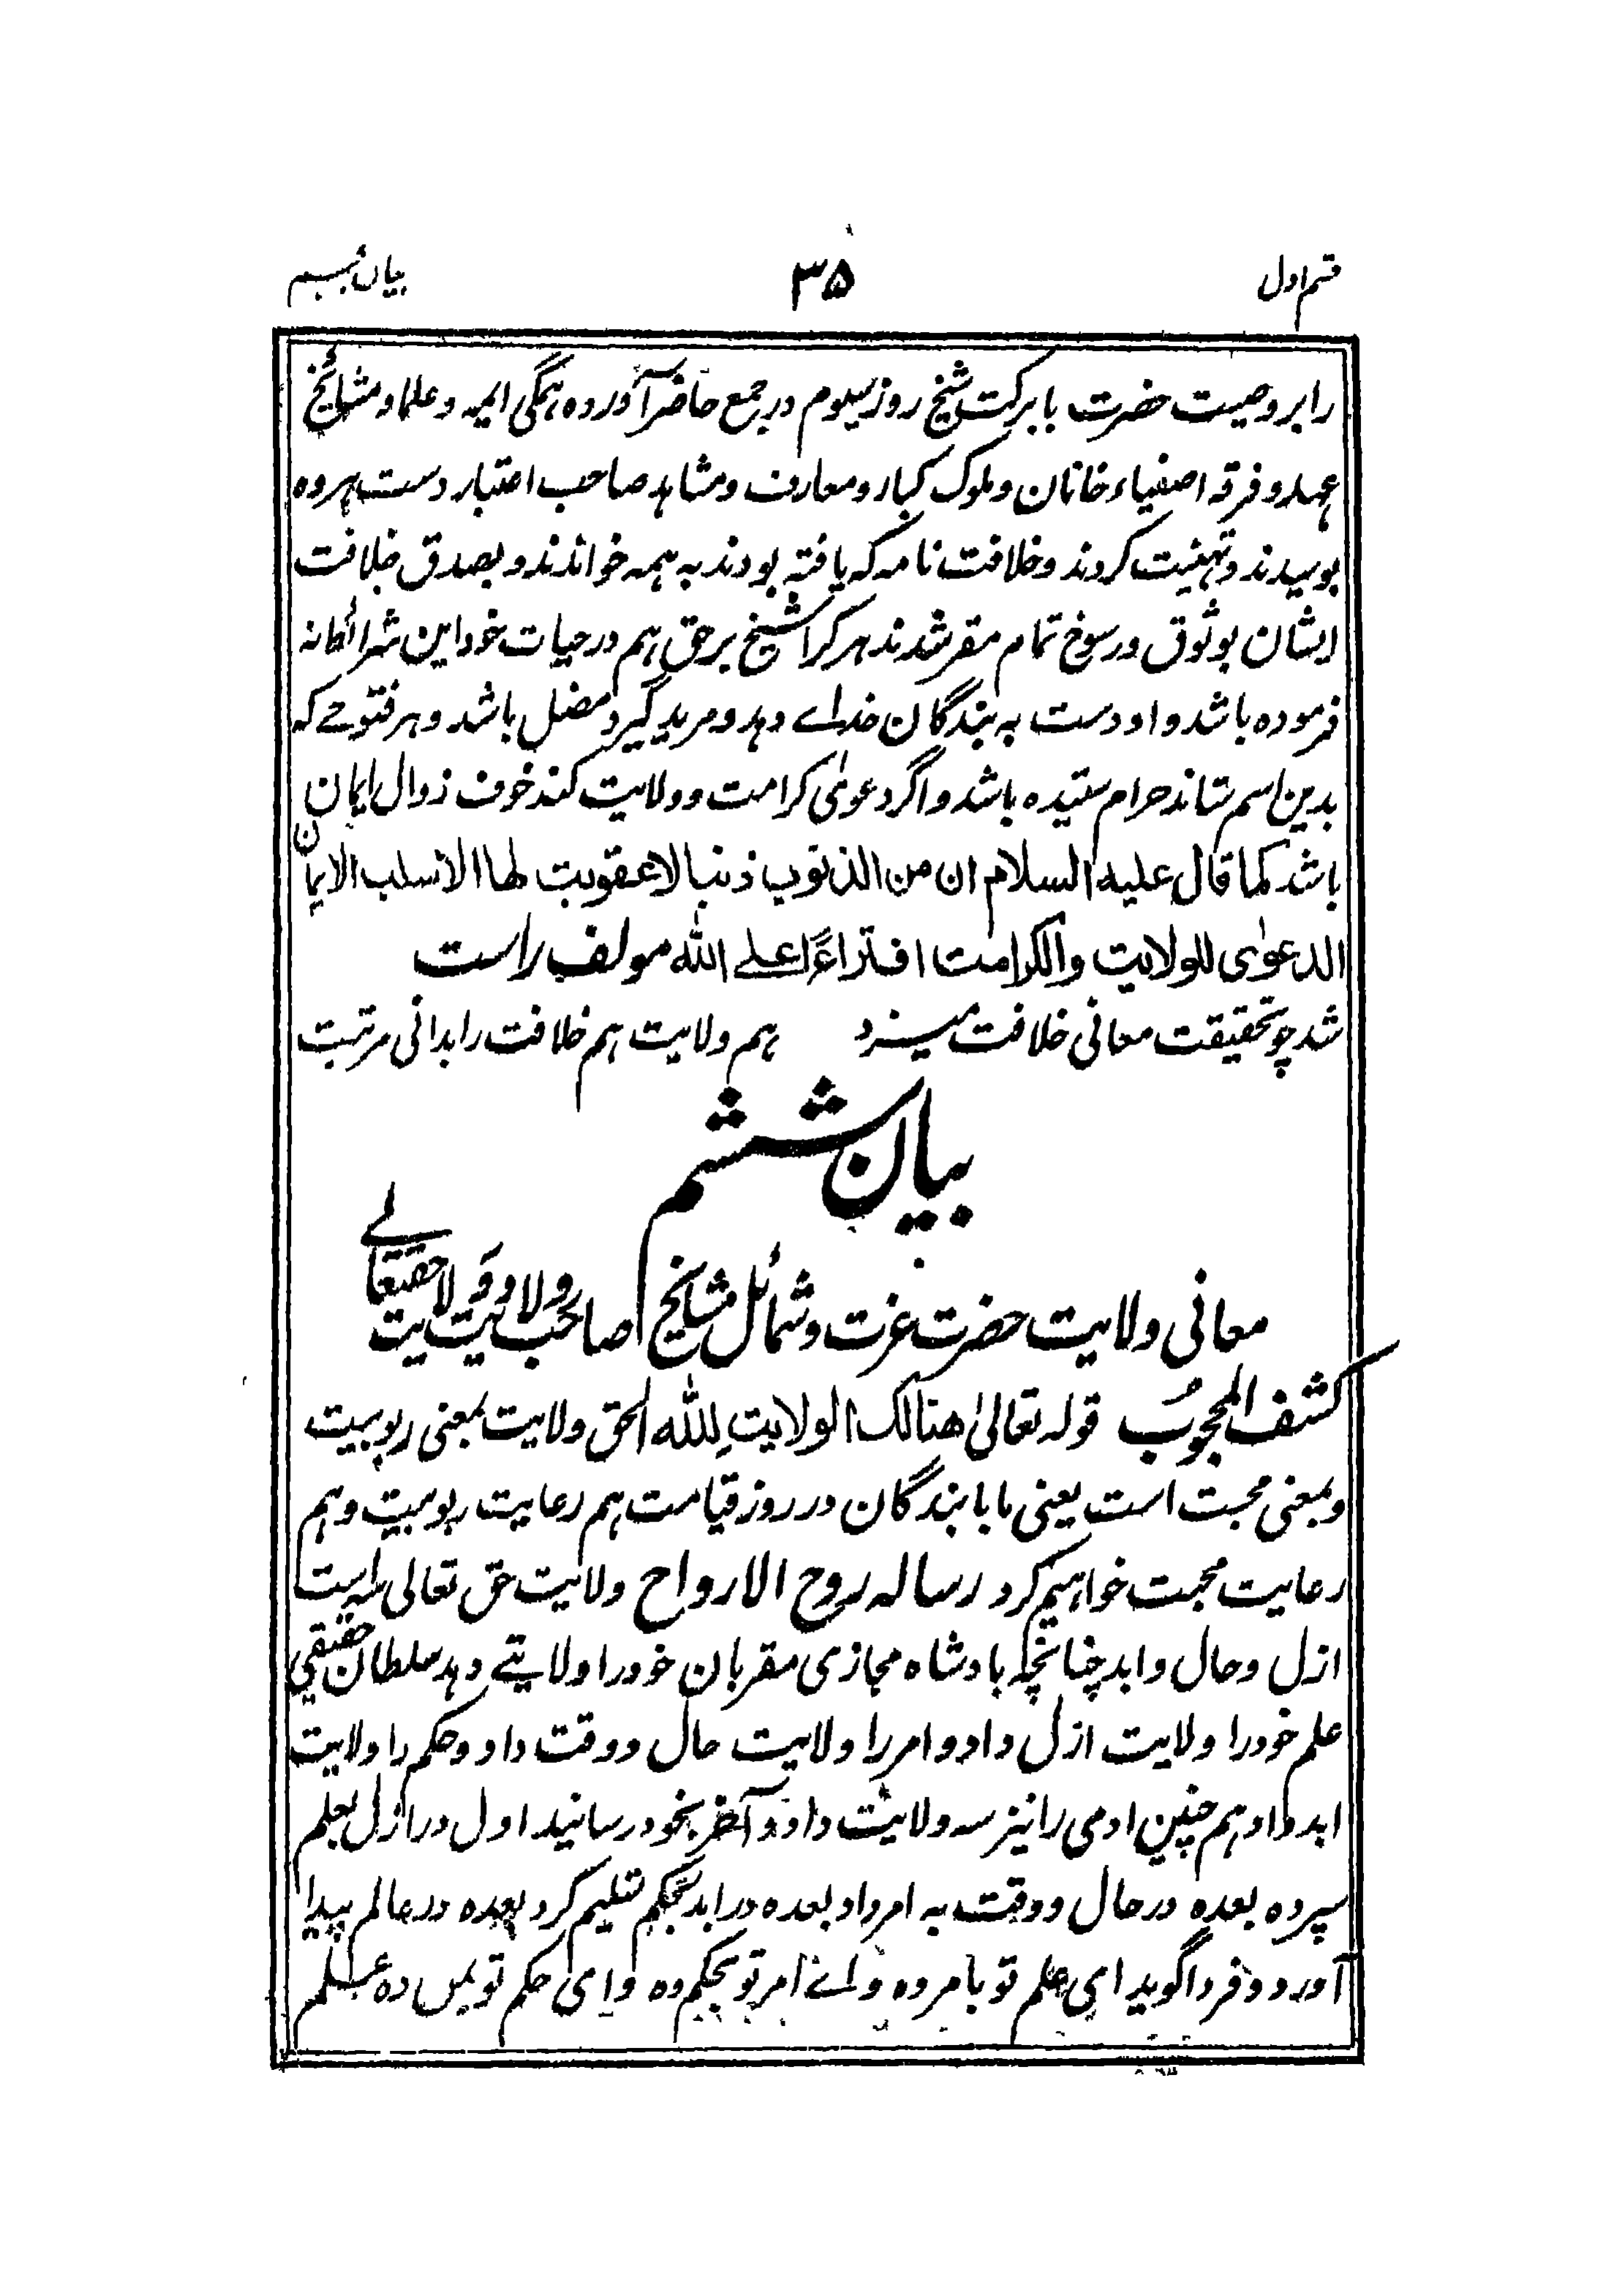 قسم اول
۳۵
بیان ششم
را بر وصیت حضرت با برکت شیخ روز سیوم در جمع حاضر آورده همگی ایمه و علما و مشائخ
عهد و فرقه اصفیاء خانان و ملوک کبار و معارف و مشاهد صاحب اعتبار دست هر وه
بوسیدند و تهنیت کردند و خلافت نامه که یافته بودند به همه خواندند و بصدق خلافت
ایشان بوثوق و رسوخ تمام مقر شدند هر کرا شیخ بر حق هم در حیات خود این شرائط نه
فرموده باشد و او دست به بندگان خدای دهد و مرید گیرد مضل باشد و هر فتوحے که
بدین اسم ستاند حرام ستیده باشد و اگر دعوئ کرامت و ولایت کند خوف زوال ایمان
باشد کما قال علیه السلام ان من الذنوب ذنبا لا عقوبت لها الا سلب الایمان
الدعوی للولایت والکرامت افتراءً علی الله مولف راست
شد چو تحقیقت معانی خلافت میسزد هم ولایت هم خلافت را بدانی مرتبت
بیان ششم
معانی ولایت حضرت عزت و شمائل مشایخ صاحب ولایت و ولایت حقیقتعالے
کشف المحجوب قوله تعالیٰ هنالک الولایت لله الحق ولایت بمعنی ربوبیت
و بمعنی محبت است یعنی ما با بندگان در روز قیامت هم رعایت ربوبیت و هم
رعایت محبت خواهیم کرد رساله روح الارواح ولایت حق تعالی سه است
ازل و حال و ابد چنانچه بادشاه مجازی مقربان خود را ولایتے دهد سلطان حقیقی
علم خود را ولایت ازل داد و امر را ولایت حال و وقت داد و حکم را ولایت
ابد داد و هم چنین ادمی را نیز سه ولایت داد و آخر بخود رسانید اول در ازل بعلم
سپرده بعده در حال و وقت به امر داد بعده در ابد بحکم تسلیم کرد بعده در عالم پیدا
آورد و فردا گوید ای علم تو بامر ده و اے امر تو بحکم ده و ای حکم تو بمن ده علم